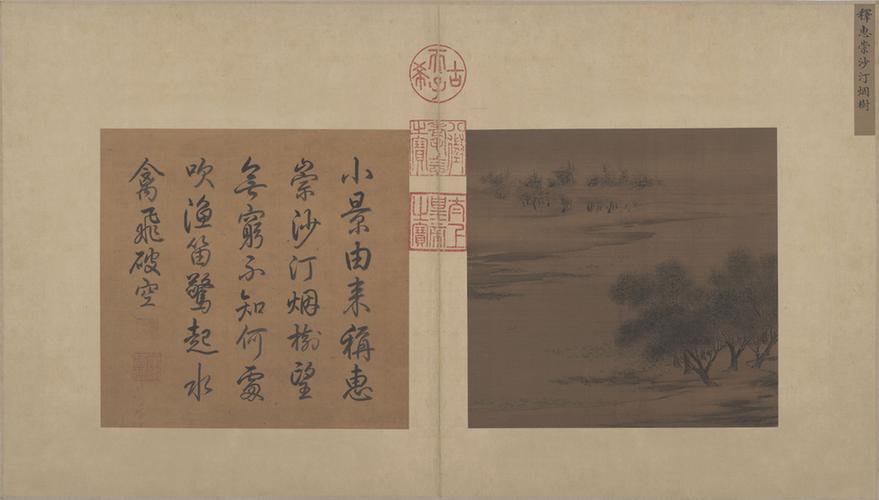 釋惠崇沙汀烟樹
古稀天子
八徵耄念之寶
太上皇帝之寶
小景由来稱惠
崇沙汀烟樹望
無窮不知何處
吹漁笛驚起水
禽飛破空